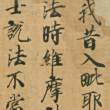 我昔入毗耶
法時維摩
士說法不當